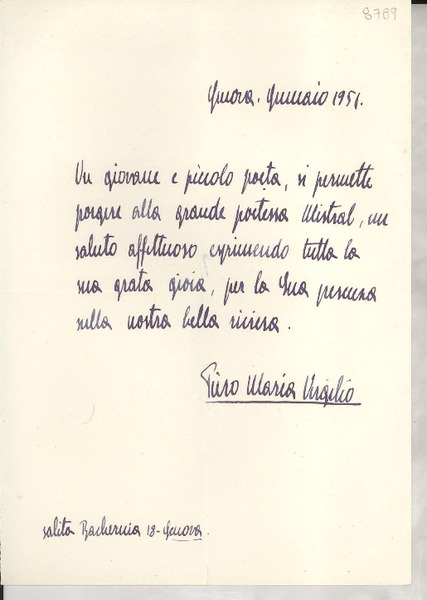 8789
Genova. Gennaio 1951.
Un giovane e piccolo poeta, si permette
porgere alla grande poetessa Mistral, un
saluto affettuoso esprimendo tutta la
sua grata gioia, per la Sua presenza
sulla nostra bella riviera.
Piero Maria Virgilio
salita Bachernia 18-Genova.